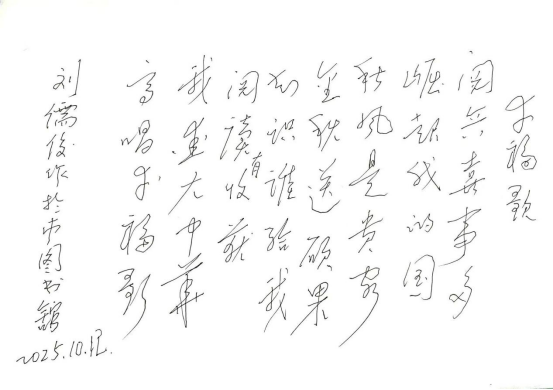 幸福歌
阅兵喜事多
崛起我的国
秋风是贵客
金秋送硕果
知识谁给我
阅读有收获
我爱大中华
高唱幸福歌
刘儒俊作於市图书舘
2025.10.